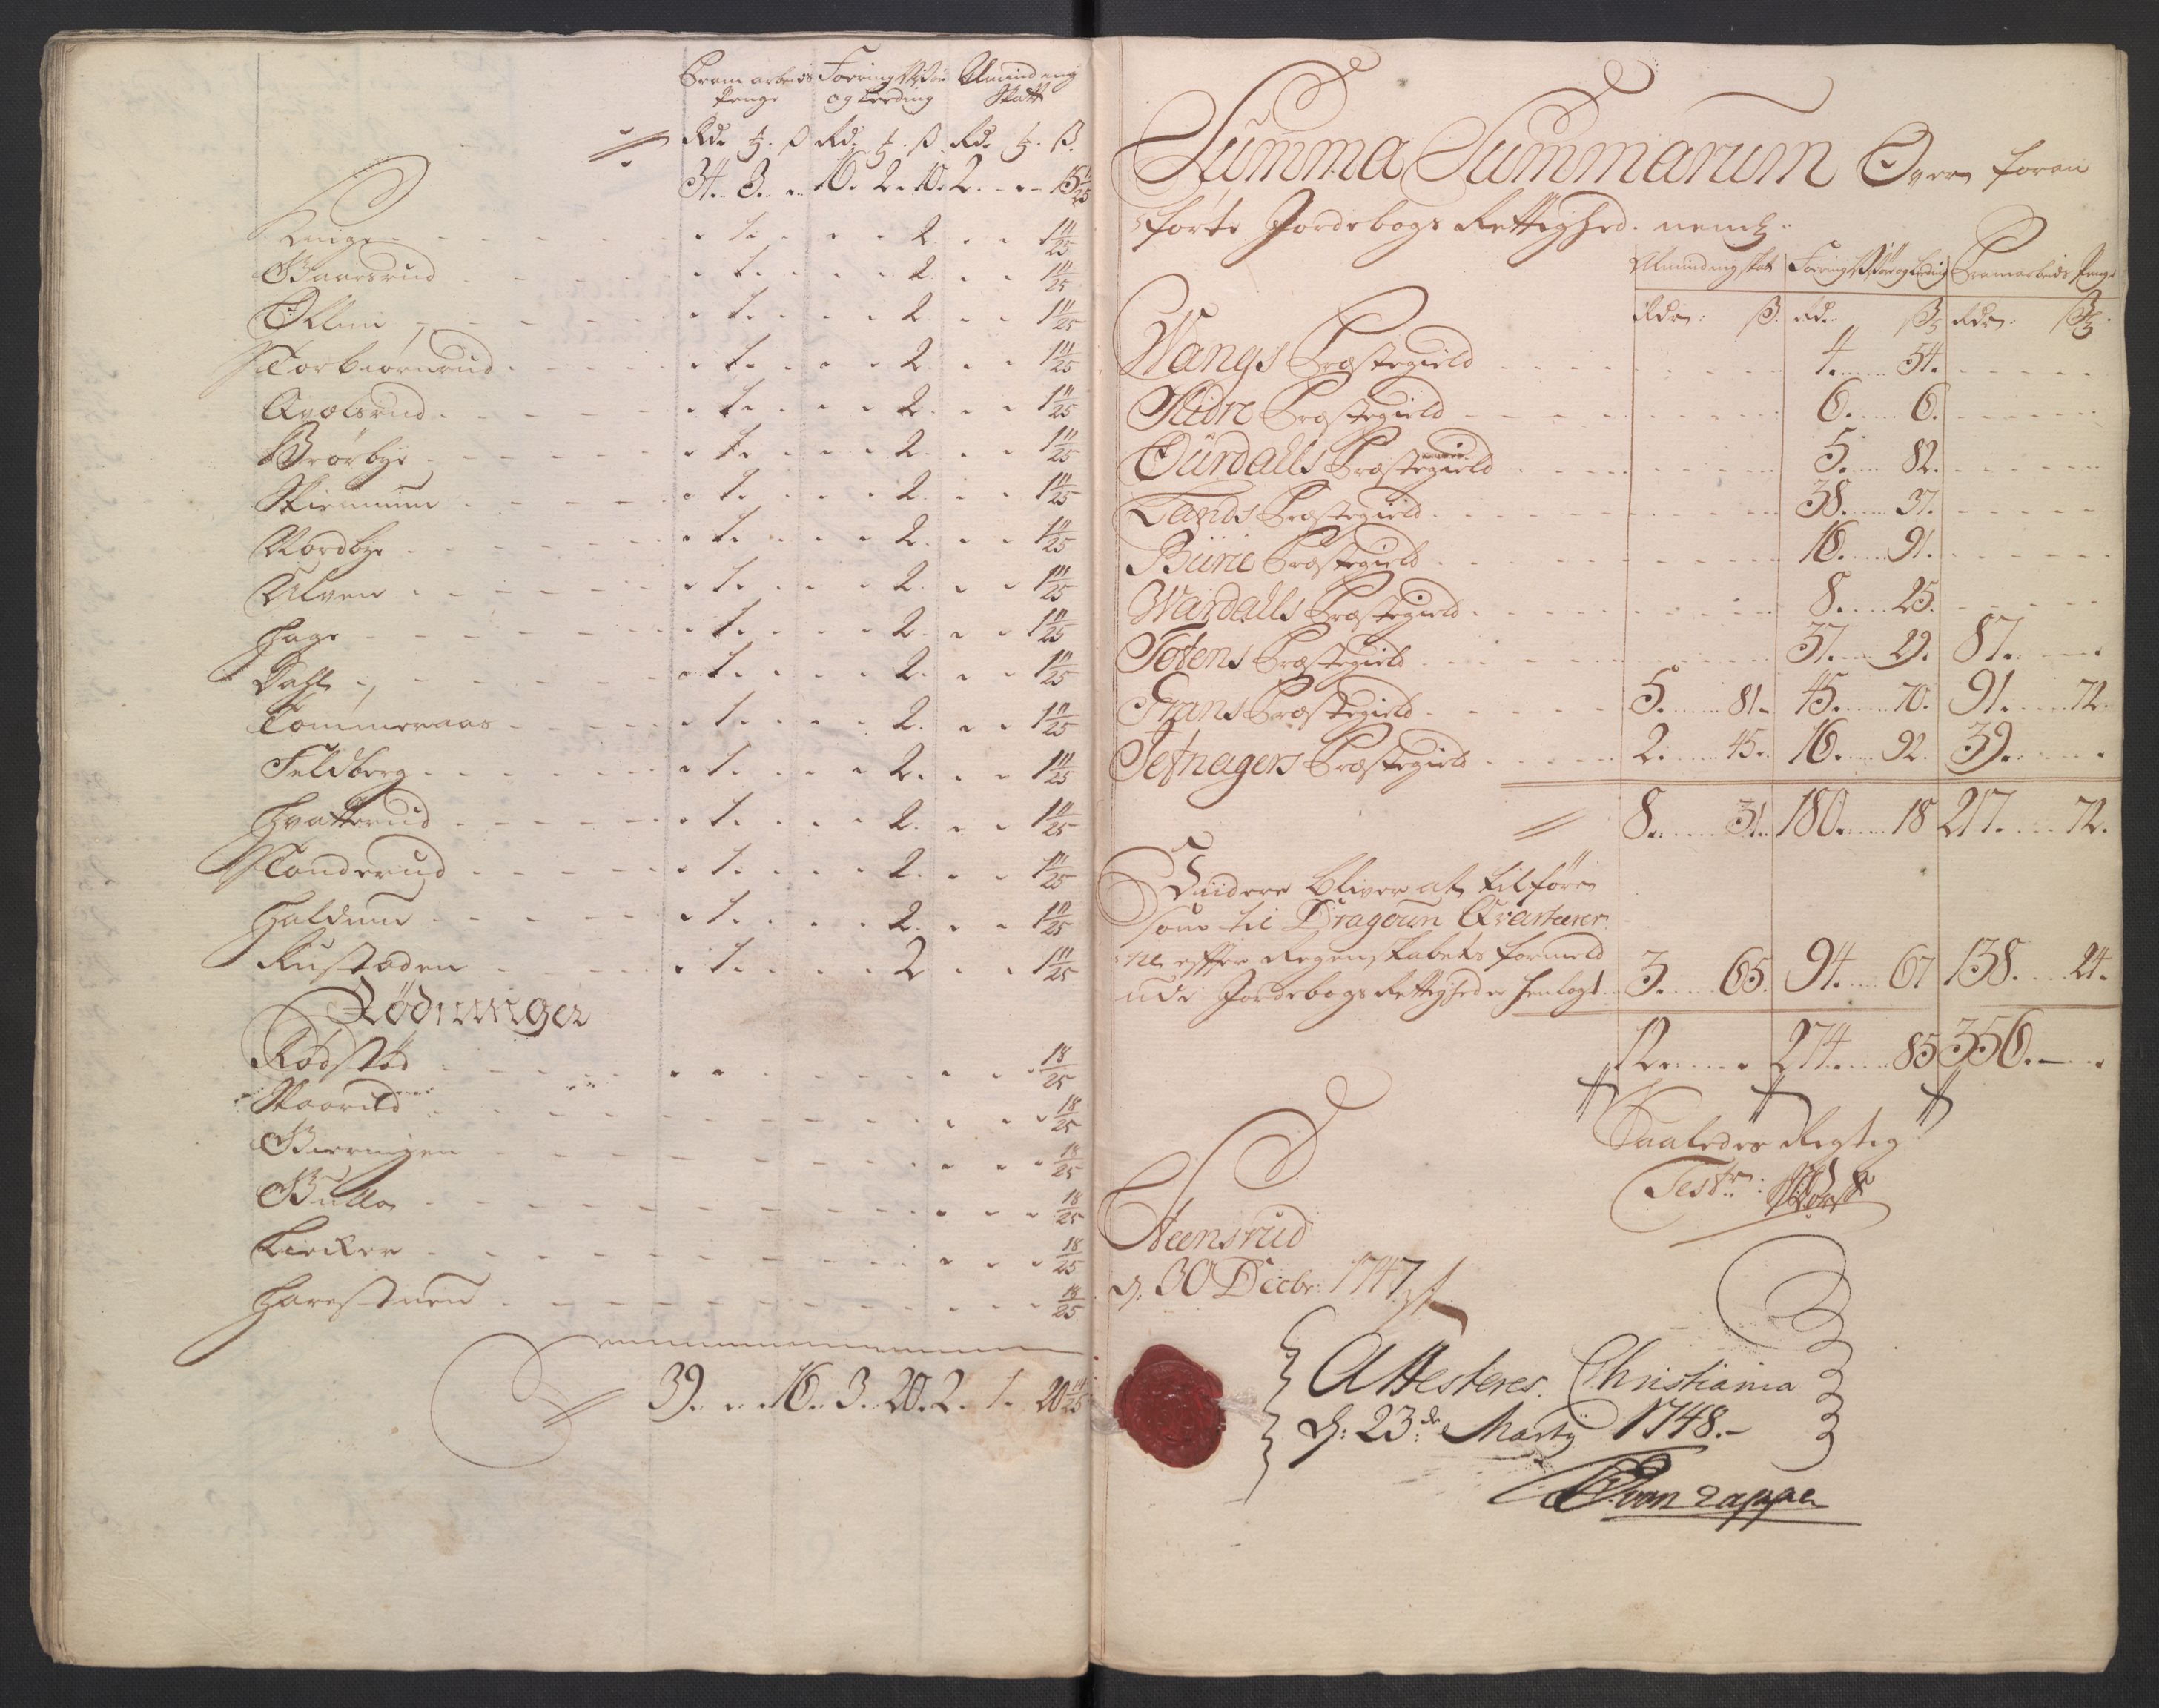 Fram arbeids Foering Visøre Alminding
Penge og Leding Skatt
Rdr ß Rdr ß Rdr ß.
34. 3. 16. 2. 10. 2. 15 1/25
Lunge 1. 2. 1 11/25
Baarsrud 1. 2. 1 11/25
1. 2. 1 11/25
Torbiørnrud 1. 2. 1 11/25
Qvalsrud 1. 2. 1 11/25
Brørbye 1. 2. 1 11/25
Skiermum 1. 2. 1 11/25
Nordbye 1. 2. 1 11/25
Ulven 1. 2. 1 11/25
Hage 1. 2. 1 11/25
Dahl 1. 2. 1 11/25
Tømmeraas 1. 2. 1 11/25
Feldberg 1. 2. 1 11/25
Hvatterud 1. 2. 1 11/25
Tønderud 1. 2. 1 11/25
Haldum 1. 2. 1 11/25
Rustøden 1. 2 1 11/25
Rødninger
Rødstød 18/25
Skaarild 18/25
Bierningen 18/25
Bulla 18/25
Lieker 18/25
Harestuen 18/25
39. 16. 3. 20. 2. 1. 20 14/25
Summa Summarum Over foran
førte Jordebogs Rettighed. neml:
Alminding skat Foering Visøre og Leding Framarbeids Penge
Rdr: ß. Rd: ß Rdr: ß
Wangs Præstegield 4. 54.
Slidre Præstegield 6. 6.
Ourdalls Præstegield 5. 82.
Lands Præstegield 38. 37.
Biirie Præstegield 18. 91.
Wardalls Præstegield 8. 25.
Totens Præstegield 37. 29. 87.
Grans Præstegield 5. 81. 45. 70. 91. 72.
Jefnagers Præstegield 2. 45. 16. 92. 39.
8. 31. 180. 18 217. 72.
Viidere bliver at tilføre
som til Dragoun Qvarteerer
ne efter Regenskabets formeld
ude Jordebogs Rettigheder henlagt 3. 65. 94. 67 138. 24.
12. 274. 85 356.
Saaledes Rigtig
Test:
Steensrud
d. 30 Decbr: 1747
Attesteres. Christiania
d: 23de Marty 1748.